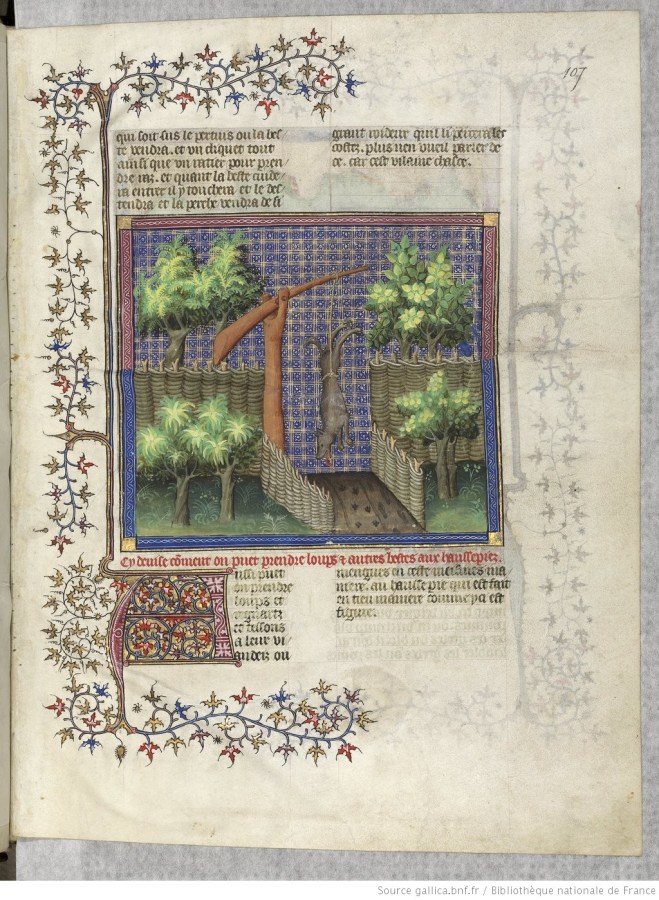 107
qui soit sus le pertuis ou la bes
te vendra. et un cliquet tout
ainsi que un ratier pour pren
dre raz. et quant la beste cuide
ra entrer il y touchera et le des
tendra et la perche vendra de si
grant roideur qu'il li percera les
costez. plus n'en vueil parler de
ce. car cest vilaine chasce.
Cy devise coment on puet prendre loups & autres bestes aux haussepiez.
Ainsi puet
on prendre
loups et
regnartz
et tessons
a leur vi
andeiz ou
mengues en ceste mesmes ma
niere. au hausse pie qui est fait
en tieu maniere comme ya est
figure.
Source gallica.bnf.fr / Bibliothèque nationale de France